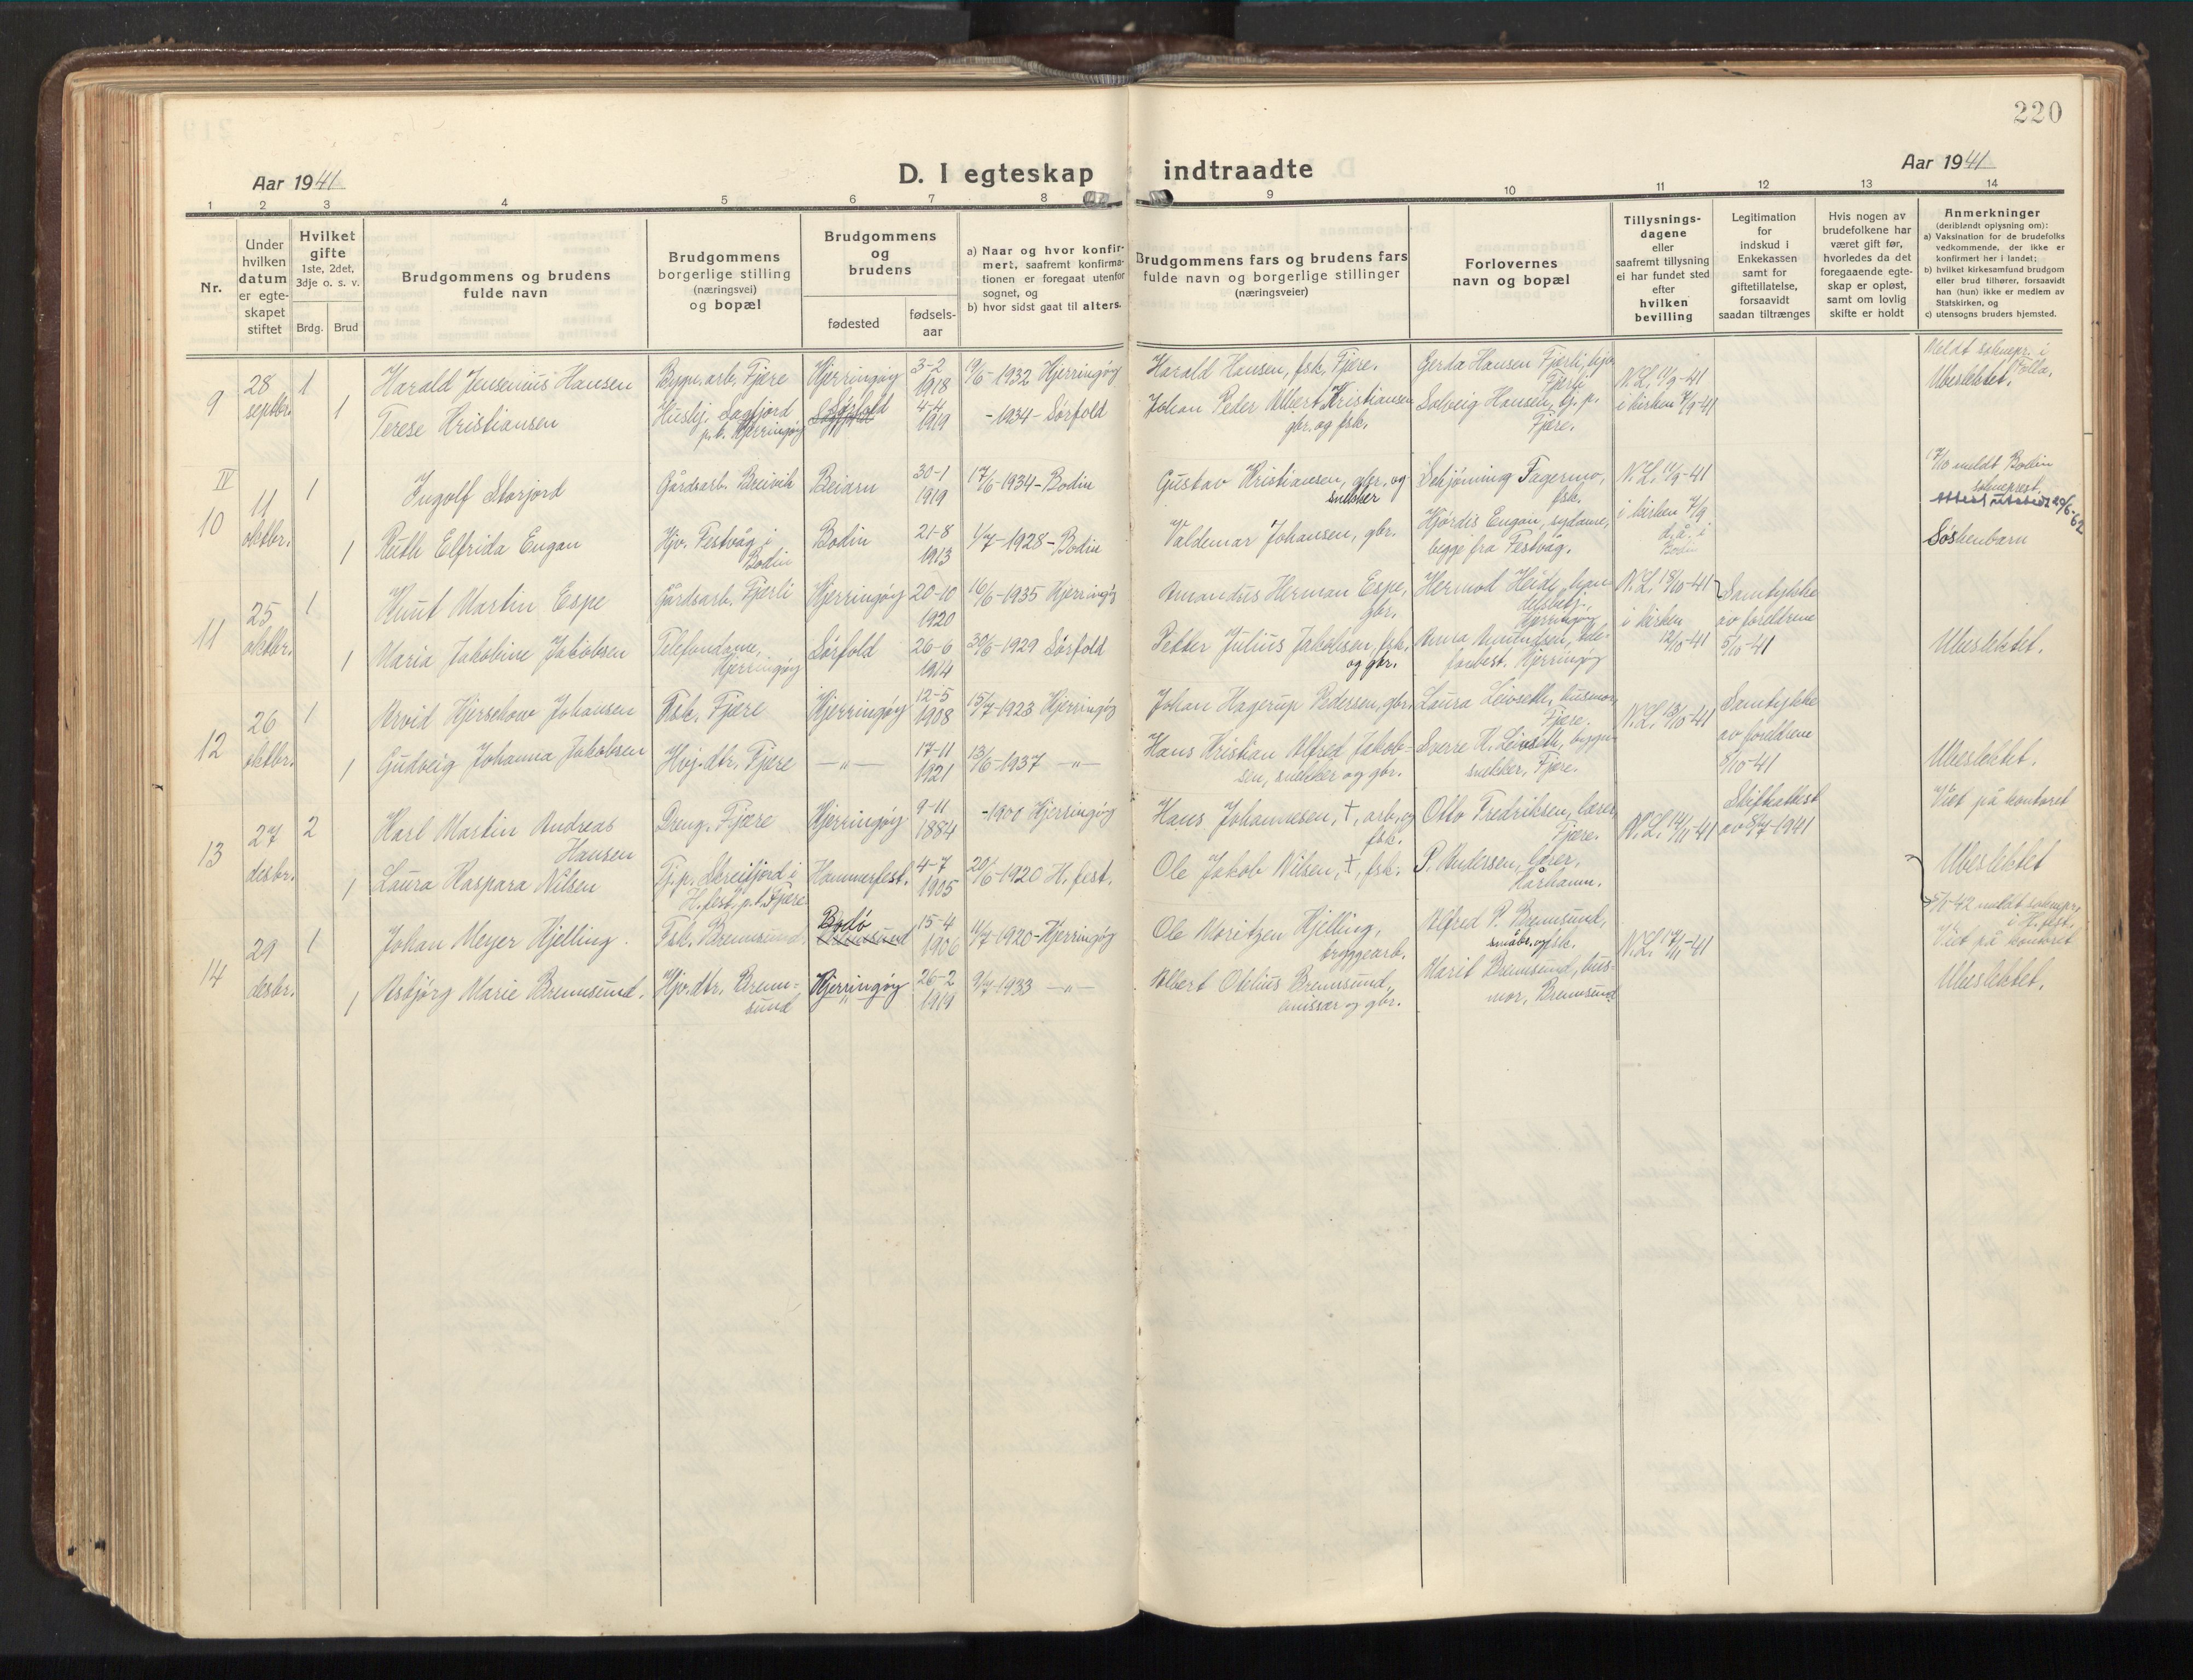 220
D. I egteskap indtraadte
Aar 1941
Aar 1941
1 2 3 4 5 6 7 8 9 10 11 12 13 14
Nr.
Under
hvilken
datum
er egte-
skapet
stiftet
Hvilket
gifte
1ste, 2det,
3dje o. s. v.
Brdg. Brud
Brudgommens og brudens
fulde navn
Brudgommens
borgerlige stilling
(næringsvei)
og bopæl
Brudgommens
og
brudens
fødested
fødsels-
aar
a) Naar og hvor konfir-
mert, saafremt konfirma-
tionen er foregaat utenfor
sognet, og
b) hvor sidst gaat til alters.
Brudgommens fars og brudens fars
fulde navn og borgerlige stillinger
(næringsveier)
Forlovernes
navn og bopæl
Tillysnings-
dagene
eller
saafremt tillysning
ei har fundet sted
efter
hvilken
bevilling
Legitimation
for
indskud i
Enkekassen
samt for
giftetillatelse,
forsaavidt
saadan tiltrænges
Hvis nogen av
brudefolkene har
været gift før,
hvorledes da det
foregaaende egte-
skap er opløst,
samt om lovlig
skifte er holdt
Anmerkninger
(deriblandt oplysning om):
a) Vaksination for de brudefolks
vedkommende, der ikke er
konfirmert her i landet;
b) hvilket kirkesamfund brudgom
eller brud tilhører, forsaavidt
han (hun) ikke er medlem av
Statskirken, og
c) utensogns bruders hjemsted.
9
28
septbr.
1
Harald Jensenius Hansen
Bygn.arb. Fjære
Kjerringøy
3-2
1918
19/6-1932 Kjerringøy
Harald Hansen, fsk. Fjære.
Gerda Hansen Fjærli, hjv.
Fjærli
N.L. 11/9-41
i kirken 7/9-41
Meldt soknepr. i
Folla.
Ubeslektet.
1
Terese Kristiansen
Hushj. Sagfjord
p.t. Kjerringøy
Sørfold
4-4
1919
-1934- Sørfold
Johan Peder Albert Kristiansen
gbr. og fsk.
Solveig Hansen, tj. p.
Fjære.
IV
10
11
oktbr.
1
Ingolf Storjord
Gårdsarb. Breivik
Beiarn
30-1
1919
17/6-1934-Bodin
Gustav Kristiansen, gbr. og
snekker
Schjønning Fagermo,
fsk.
N.L. 11/9-41
i kirken 7/9
d.å. i
Bodin
7/10 meldt Bodin
sokneprest.
Søskenbarn
1
Ruth Elfrida Engan
Hjv. Festvåg i
Bodin
Bodin
21-8
1913
1/7-1928-Bodin
Valdemar Johansen, gbr.
Hjørdis Engan, sydame,
begge fra Festvåg.
11
25
oktbr.
1
Knut Martin Espe
Gårdsarb. Fjærli
Kjerringøy
20-10
1920
16/6-1935 Kjerringøy
Amandus Herman Espe,
gbr.
Hermod Heide, han-
delsbetj.,
Kjerringøy
N.L. 18/10-41
i kirken
12/10-41
Samtykke
av foreldrene
5/10-41
Ubeslektet.
1
Maria Jakobine Jakobsen
Telefondame,
Kjerringøy
Sørfold
26-6
1914
30/6-1929 Sørfold
Petter Julius Jakobsen, fsk.
og gbr.
Anna Amundsen, tele-
fonbest. Kjerringøy
12
26
oktbr.
1
Arvid Kjerschow Johansen
Fsk. Fjære
Kjerringøy
12-5
1908
15/7-1923 Kjerringøy
Johan Hagerup Pedersen, gbr.
Laura Leivseth, husmor,
Fjære.
N.L. 13/10-41
Samtykke
av foreldrene
5/10-41
Ubeslektet.
1
Gudveig Johanna Jakobsen
Hvj.dtr. Fjære
—"—
17-11
1921
13/6-1937 —"—
Hans Kristian Alfred Jakob-
sen, snekker og gbr.
Sverre K. Leivseth, bygn-
snekker, Fjære.
13
27
desbr.
2
Karl Martin Andreas
Hansen
Dreng. Fjære
Kjerringøy
9-11
1884
-1900 Kjerringøy
Hans Johannesen, †, arb. og
fsk.
Otto Fredriksen, lærer,
Fjære.
N.L. 14/11-41
Skifteattest
av 8/7-1941
Viet på kontoret
Ubeslektet
5/1-42 meldt sokneprs.
i H.fest.
1
Laura Kaspara Nilsen
Tj.p. Skreifjord i
H.fest, p.t. Fjære
Hammerfest.
4-7
1905
20/6-1920 H.fest.
Ole Jakob Nilsen, †, fsk.
P. Andersen, lærer.
Kårhamn.
14
29
desbr.
1
Johan Meyer Kjelling.
Fsk. Bremsund.
Bodø
15-4
1906
11/7-1920-Kjerringøy
Ole Moritzen Kjelling,
bryggearb.
Alfred P. Bremsund,
småbr. og fsk.
N.L. 19/11-41
Viet på kontoret
Ubeslektet.
1
Asbjørg Marie Bremsund.
Hjv.dtr. Brem-
sund
Kjerringøy
26-2
1919
9/7-1933 —"—
Albert Otelius Bremsund,
emissær og gbr.
Marit Bremsund, hus-
mor, Bremsund